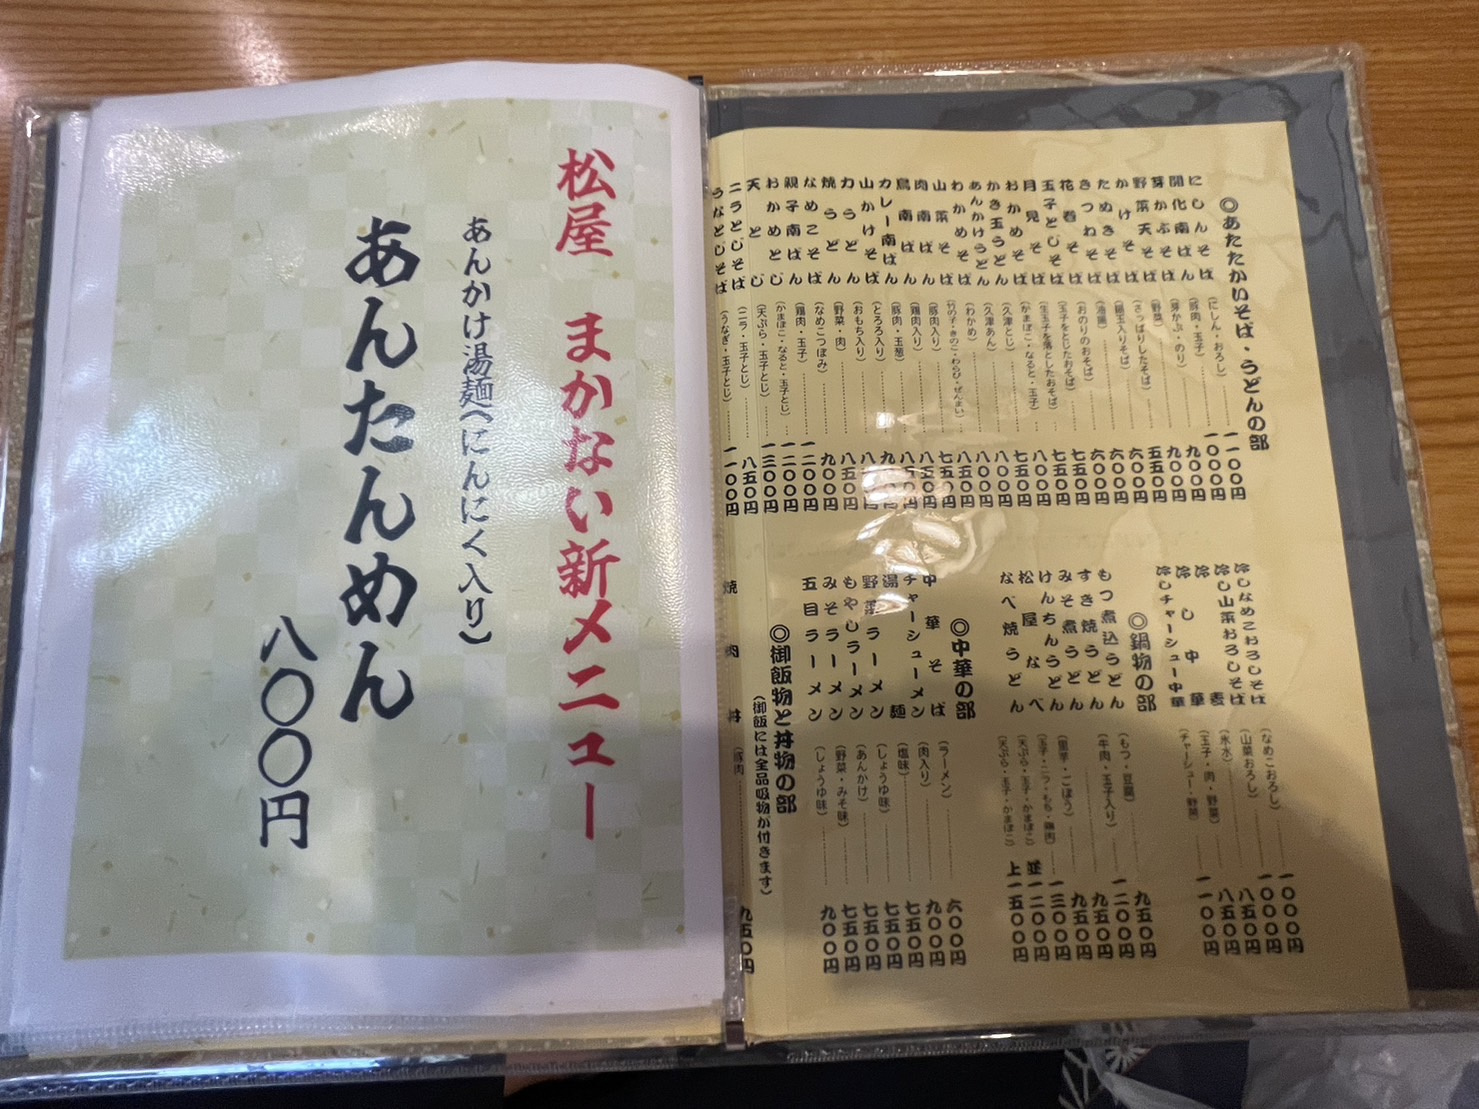 ◎あたたかいそば・うどんの部
にしんそば（にしん・おろし）一一〇〇円
開化南ばん（豚肉・玉子）一〇〇〇円
芽かぶそば（芽かぶ・のり）九〇〇円
野菜天そば（野菜）九〇〇円
かけそば（さっぱりしたそば）五五〇円
たぬきそば（揚玉入りそば）六〇〇円
きつねそば（油揚）六〇〇円
花巻そば（おのりのおそば）六〇〇円
玉子とじそば（玉子をとじたおそば）七五〇円
月見そば（生玉子を落としたおそば）七五〇円
おかめそば（かまぼこ・なると・玉子）八〇〇円
かき玉うどん（久津とじ）七五〇円
あんかけうどん（久津あん）八〇〇円
わかめそば（わかめ）八〇〇円
山菜そば（竹の子・きのこ・わらび・ぜんまい）八五〇円
肉南ばん（豚肉入り）七五〇円
鳥南ばん（鶏肉入り）八五〇円
カレー南ばん（豚肉・玉葱）八五〇円
山かけそば（とろろ入り）九〇〇円
力うどん（おもち入り）
焼うどん（野菜・肉）八五〇円
なめこそば（なめこつぼみ）九〇〇円
親子南ばん（鶏肉・玉子）一二〇〇円
おかめとじ（かまぼこ・なると・玉子とじ）一二〇〇円
天とじ（天ぷら・玉子とじ）一三〇〇円
ニラとじそば（ニラ・玉子とじ）八五〇円
うなとじそば（うなぎ・玉子とじ）一一〇〇円
冷しなめこおろしそば（なめこおろし）一〇〇〇円
冷し山菜おろしそば（山菜おろし）一〇〇〇円
冷麦（氷水）八五〇円
冷し中華（玉子・肉・野菜）八五〇円
冷しチャーシュー中華（チャーシュー・野菜）一一〇〇円
◎鍋物の部
もつ煮込うどん（もつ・豆腐）九五〇円
すき焼うどん（牛肉・玉子入り）一二〇〇円
みそ煮うどん 九五〇円
けんちんうどん（里芋・ごぼう）九五〇円
松屋なべ（玉子・ニラ・もち・鶏肉）一三〇〇円
なべ焼うどん（天ぷら・玉子・かまぼこ）並一二〇〇円
（天ぷら・玉子・かまぼこ）上一五〇〇円
◎中華の部
中華そば（ラーメン）六〇〇円
チャーシューメン（肉入り）九〇〇円
湯麺（塩味）七五〇円
野菜ラーメン（しょうゆ味）七五〇円
もやしラーメン（あんかけ）七五〇円
みそラーメン（野菜・みそ味）七五〇円
五目ラーメン（しょうゆ味）九〇〇円
◎御飯物と丼物の部
（御飯には全品吸物が付きます）
焼肉丼（豚肉 九五〇円
松屋 まかない新メニュー
あんかけ湯麺（にんにく入り）
あんたんめん
八〇〇円